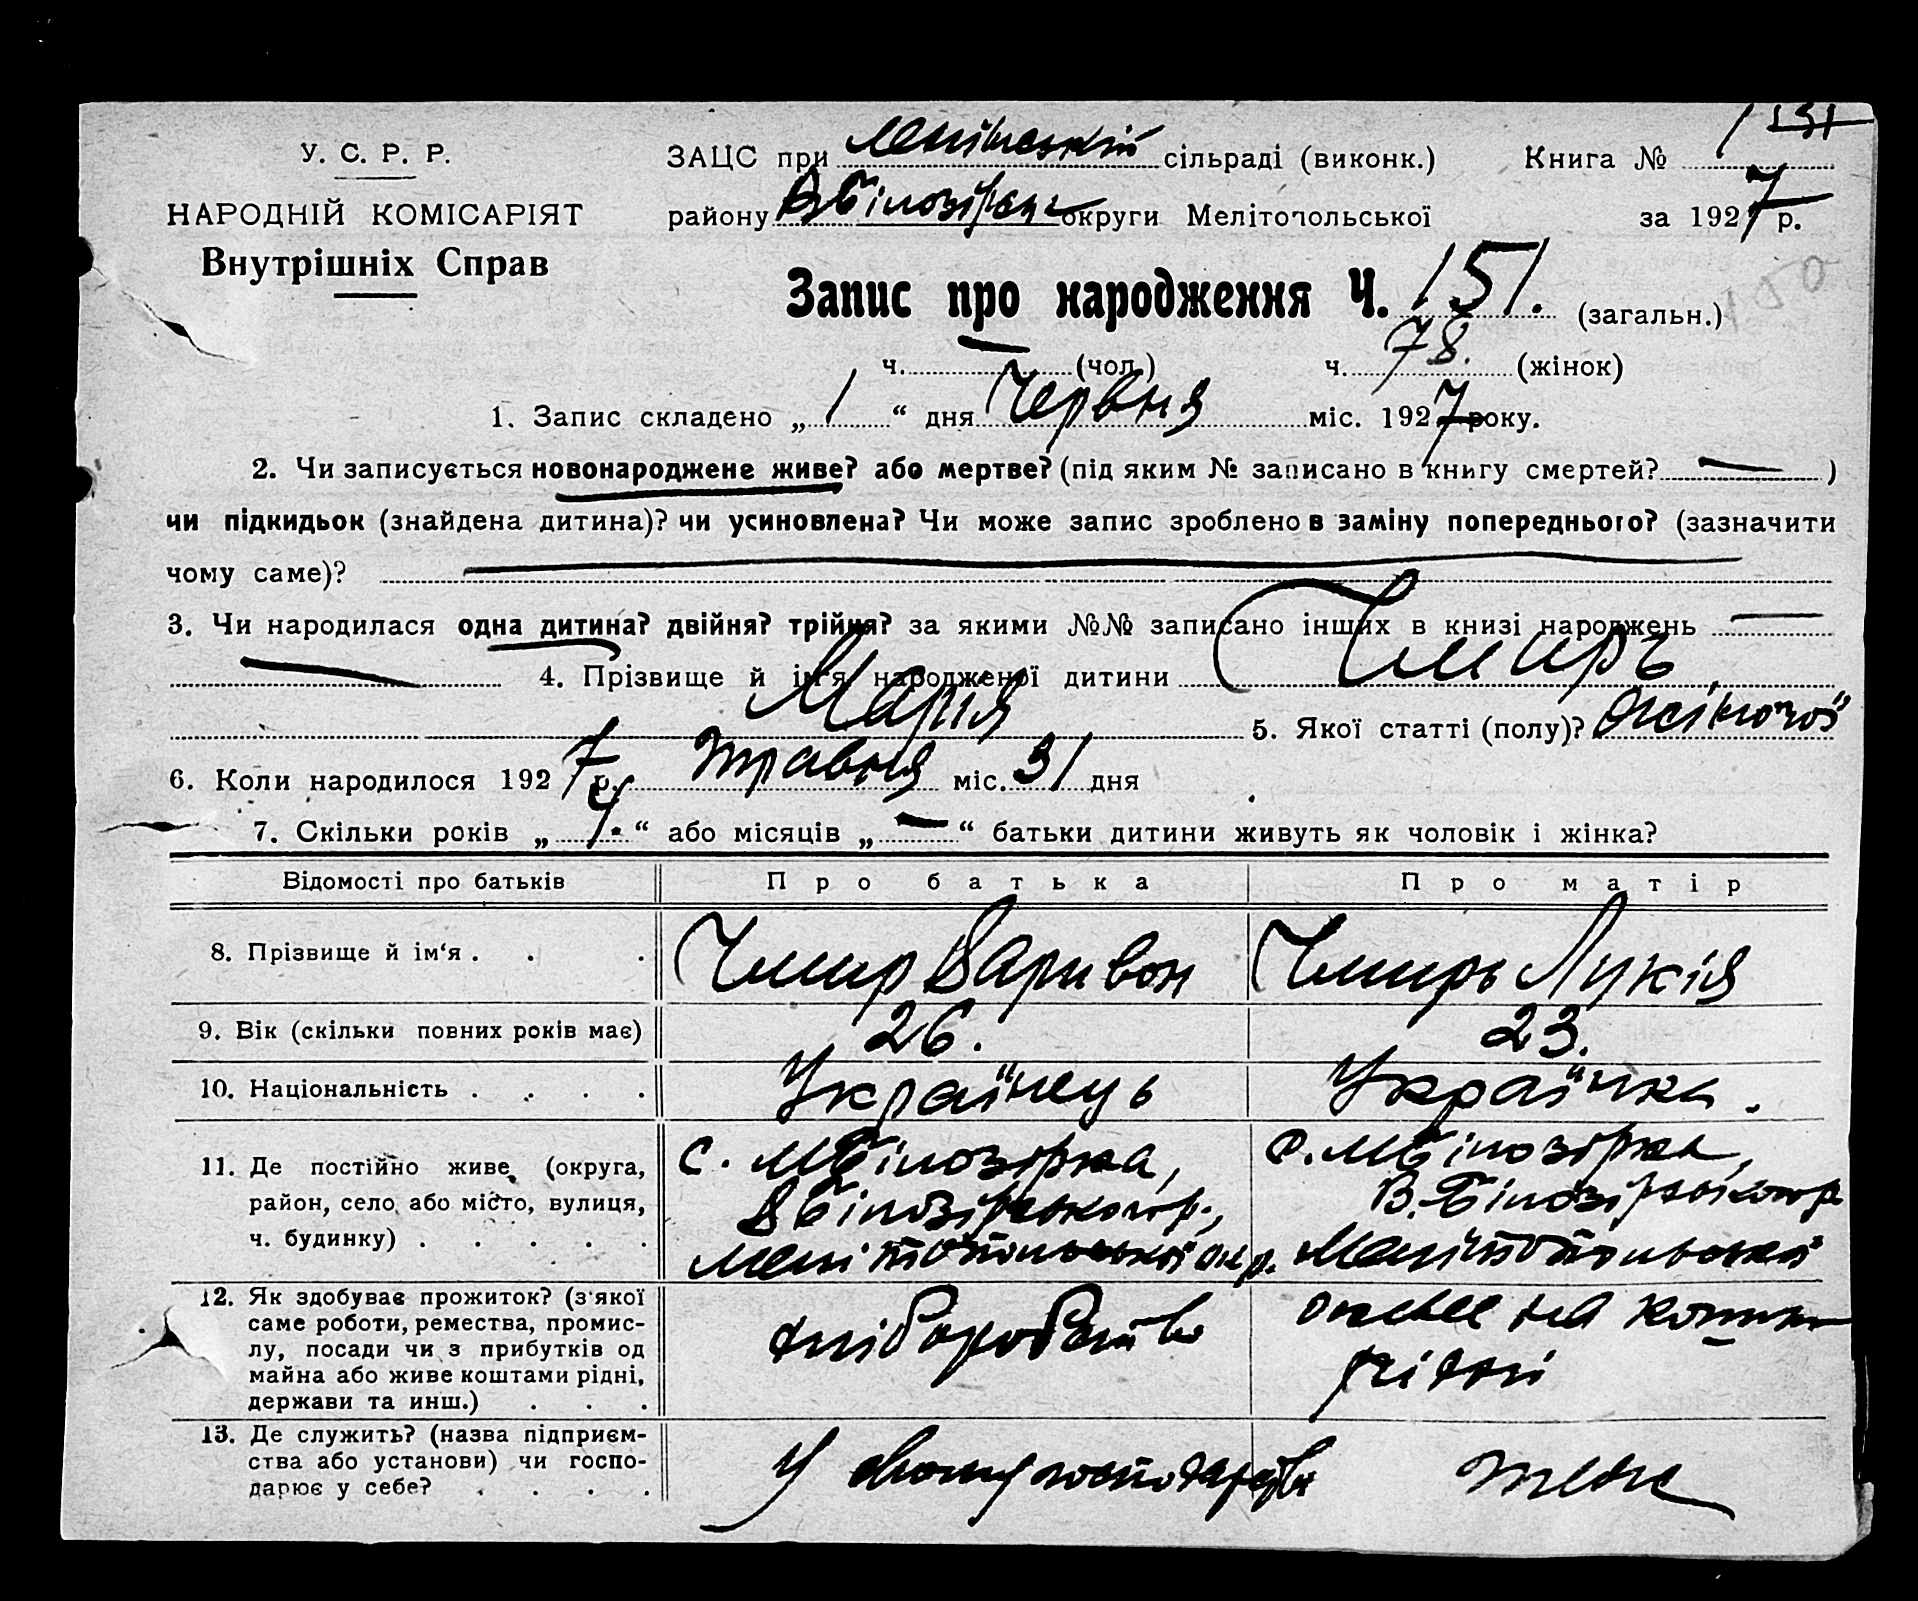 131
У. С. Р. Р.
НАРОДНІЙ КОМІСАРІЯТ
Внутрішніх Справ
ЗАЦС при Ленінській сільраді (виконк.) Книга № 1
району ВБілозірськ округи Мелітопольської за 1927 р.
Запис про народження Ч. 151. (загальн.) 150
ч. — (чол.) ч. 78. (жінок)
1. Запис складено „ 1 “ дня Червня міс. 1927 року.
2. Чи записується новонароджене живе? або мертве? (під яким № записано в книгу смертей? — )
чи підкидьок (знайдена дитина)? чи усиновлена? Чи може запис зроблено в заміну попереднього? (зазначити
чому саме)? —
3. Чи народилася одна дитина? двійня? трійня? за якими №№ записано інших в книзі народжень —
— 4. Прізвище й ім'я народженої дитини Чмирь
Марія 5. Якої статті (полу)? жіночої
6. Коли народилося 1927 р. травня міс. 31 дня
7. Скільки років „ 4. “ або місяців „ — “ батьки дитини живуть як чоловік і жінка?
Відомості про батьків Про батька Про матір
8. Прізвище й ім'я . . . Чмир Варивон Чмирь Лукія
9. Вік (скільки повних років має) 26. 23.
10. Національність . . . . Українець Українка.
11. Де постійно живе, (округа, район, село або місто, вулиця, ч. будинку) . . . . .
с. МБілозірка,
ВБілозірського р.,
Мелітопольської окр.
с. МБілозірка,
В.-Білозірського р
Мелітопольської
12. Як здобуває прожиток? (з'якої саме роботи, ремества, промис-
лу, посади чи з прибутків од
майна або живе коштами рідні,
держави та инш.) . . .
хліборобство
живе на кошти
рідні
13. Де служить? (назва підприєм-
ства або установи) чи госпо-
дарює у себе? . . . .
У своему господарстві
теж